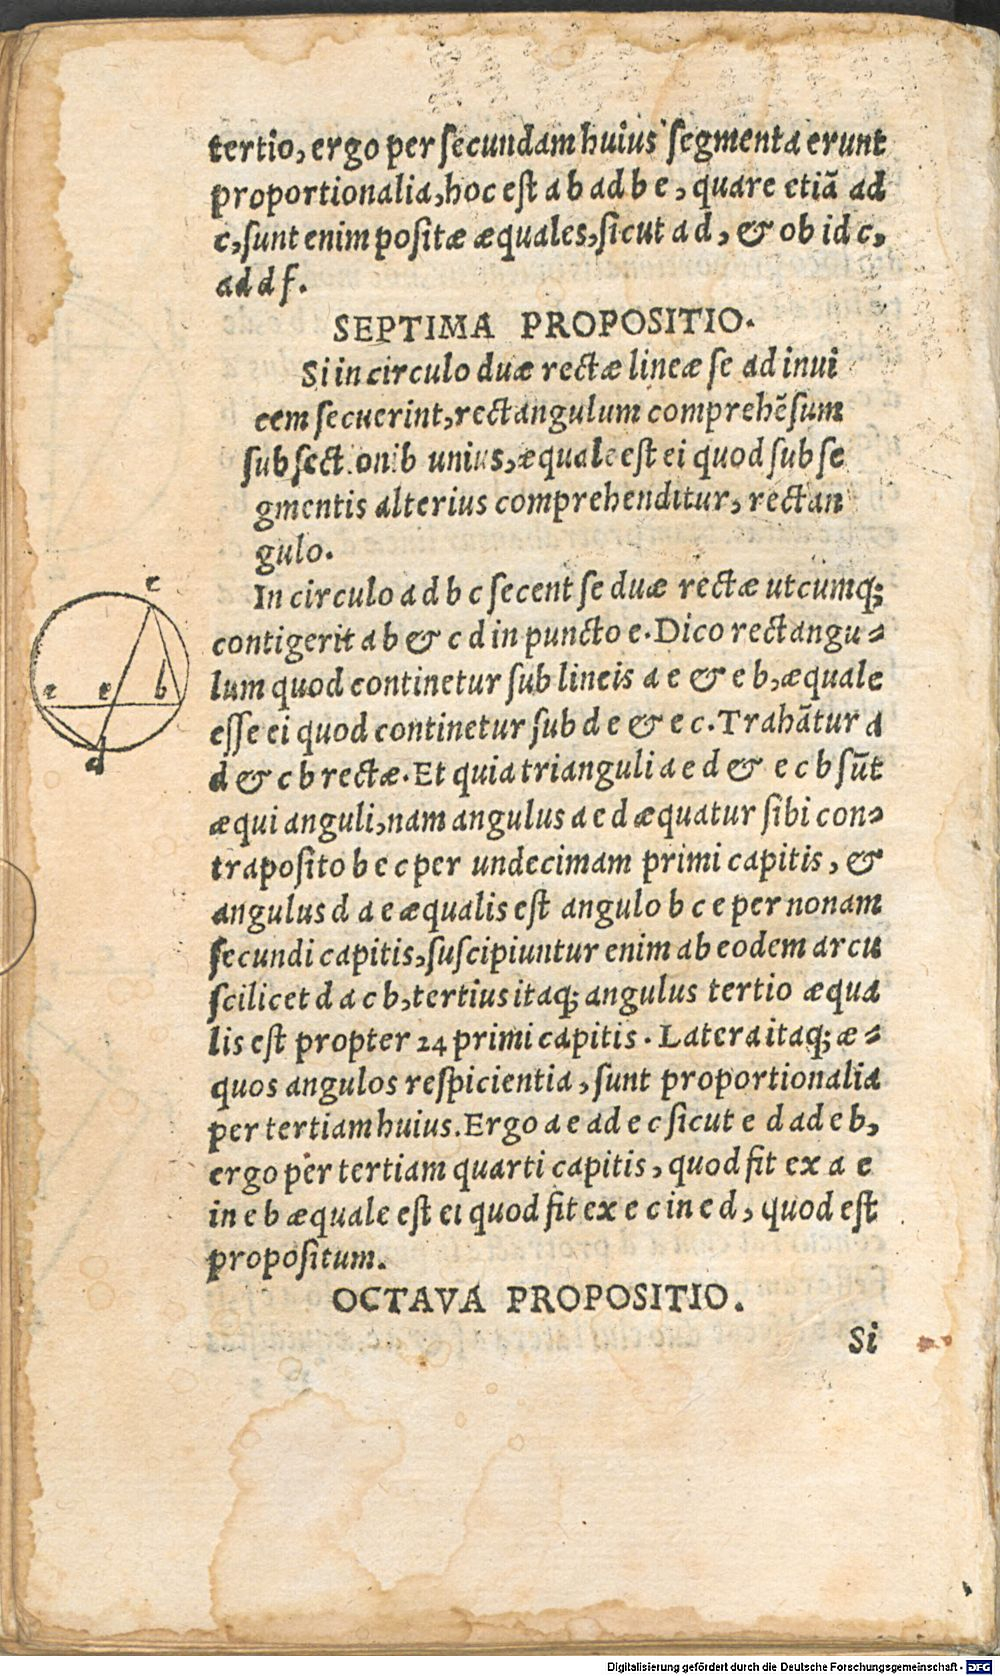 tertio, ergo per secundam huius segmenta erunt
proportionalia, hoc est a b ad b e, quare etiā ad
c, sunt enim positæ æquales, sicut a d, & ob id c,
ad d f.
SEPTIMA PROPOSITIO.
Si in circulo duæ rectæ lineæ se ad inui
cem secuerint, rectangulum comprehēsum
sub sect onib unius, æquale est ei quod sub se
gmentis alterius comprehenditur, rectan
gulo.
In circulo a d b c secent se duæ rectæ utcumq;
contigerit a b & c d in puncto e. Dico rectangu-
lum quod continetur sub lineis a e & e b, æquale
esse ei quod continetur sub d e & e c. Trahātur a
d & c b rectæ. Et quia trianguli a e d & e c b sūt
æqui anguli, nam angulus a e d æquatur sibi con-
traposito b e c per undecimam primi capitis, &
angulus d a e æqualis est angulo b c e per nonam
secundi capitis, suscipiuntur enim ab eodem arcu
scilicet d a c b, tertius itaq; angulus tertio æqua
lis est propter 24 primi capitis. Latera itaq; æ-
quos angulos respicientia, sunt proportionalia
per tertiam huius. Ergo a e ad e c sicut e d ad e b,
ergo per tertiam quarti capitis, quod fit ex a e
in e b æquale est ei quod fit ex e c in e d, quod est
propositum.
OCTAVA PROPOSITIO.
Si
c
e b
d
Digitalisierung gefördert durch die Deutsche Forschungsgemeinschaft - DFG